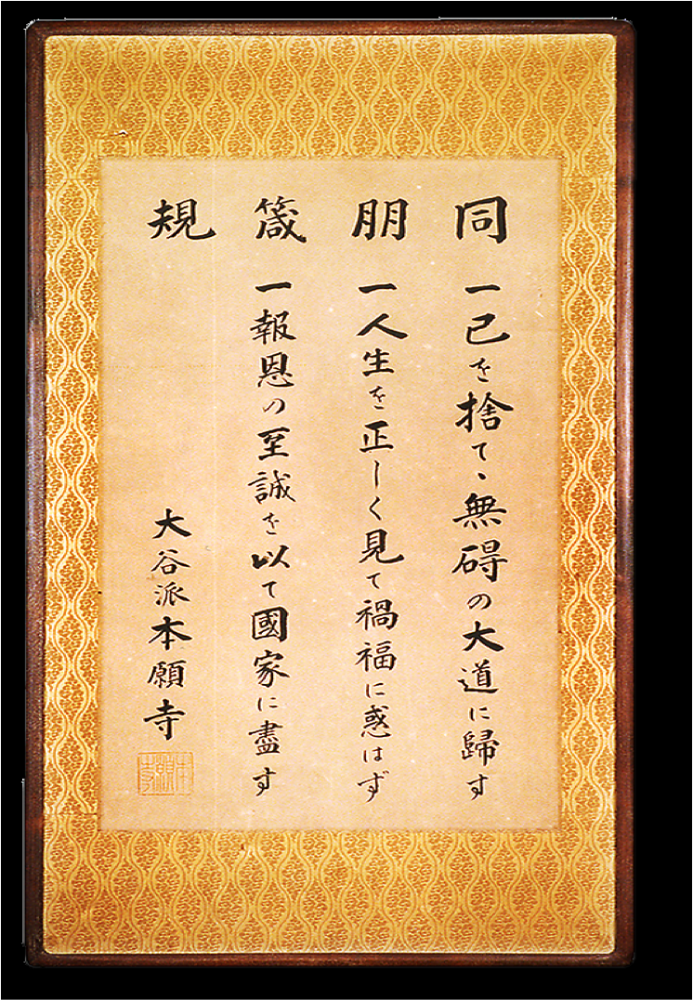 同朋箴規
一己を捨てゝ無碍の大道に歸す
一人生を正しく見て禍福に惑はず
一報恩の至誠を以て國家に盡す
大谷派本願寺
本願寺